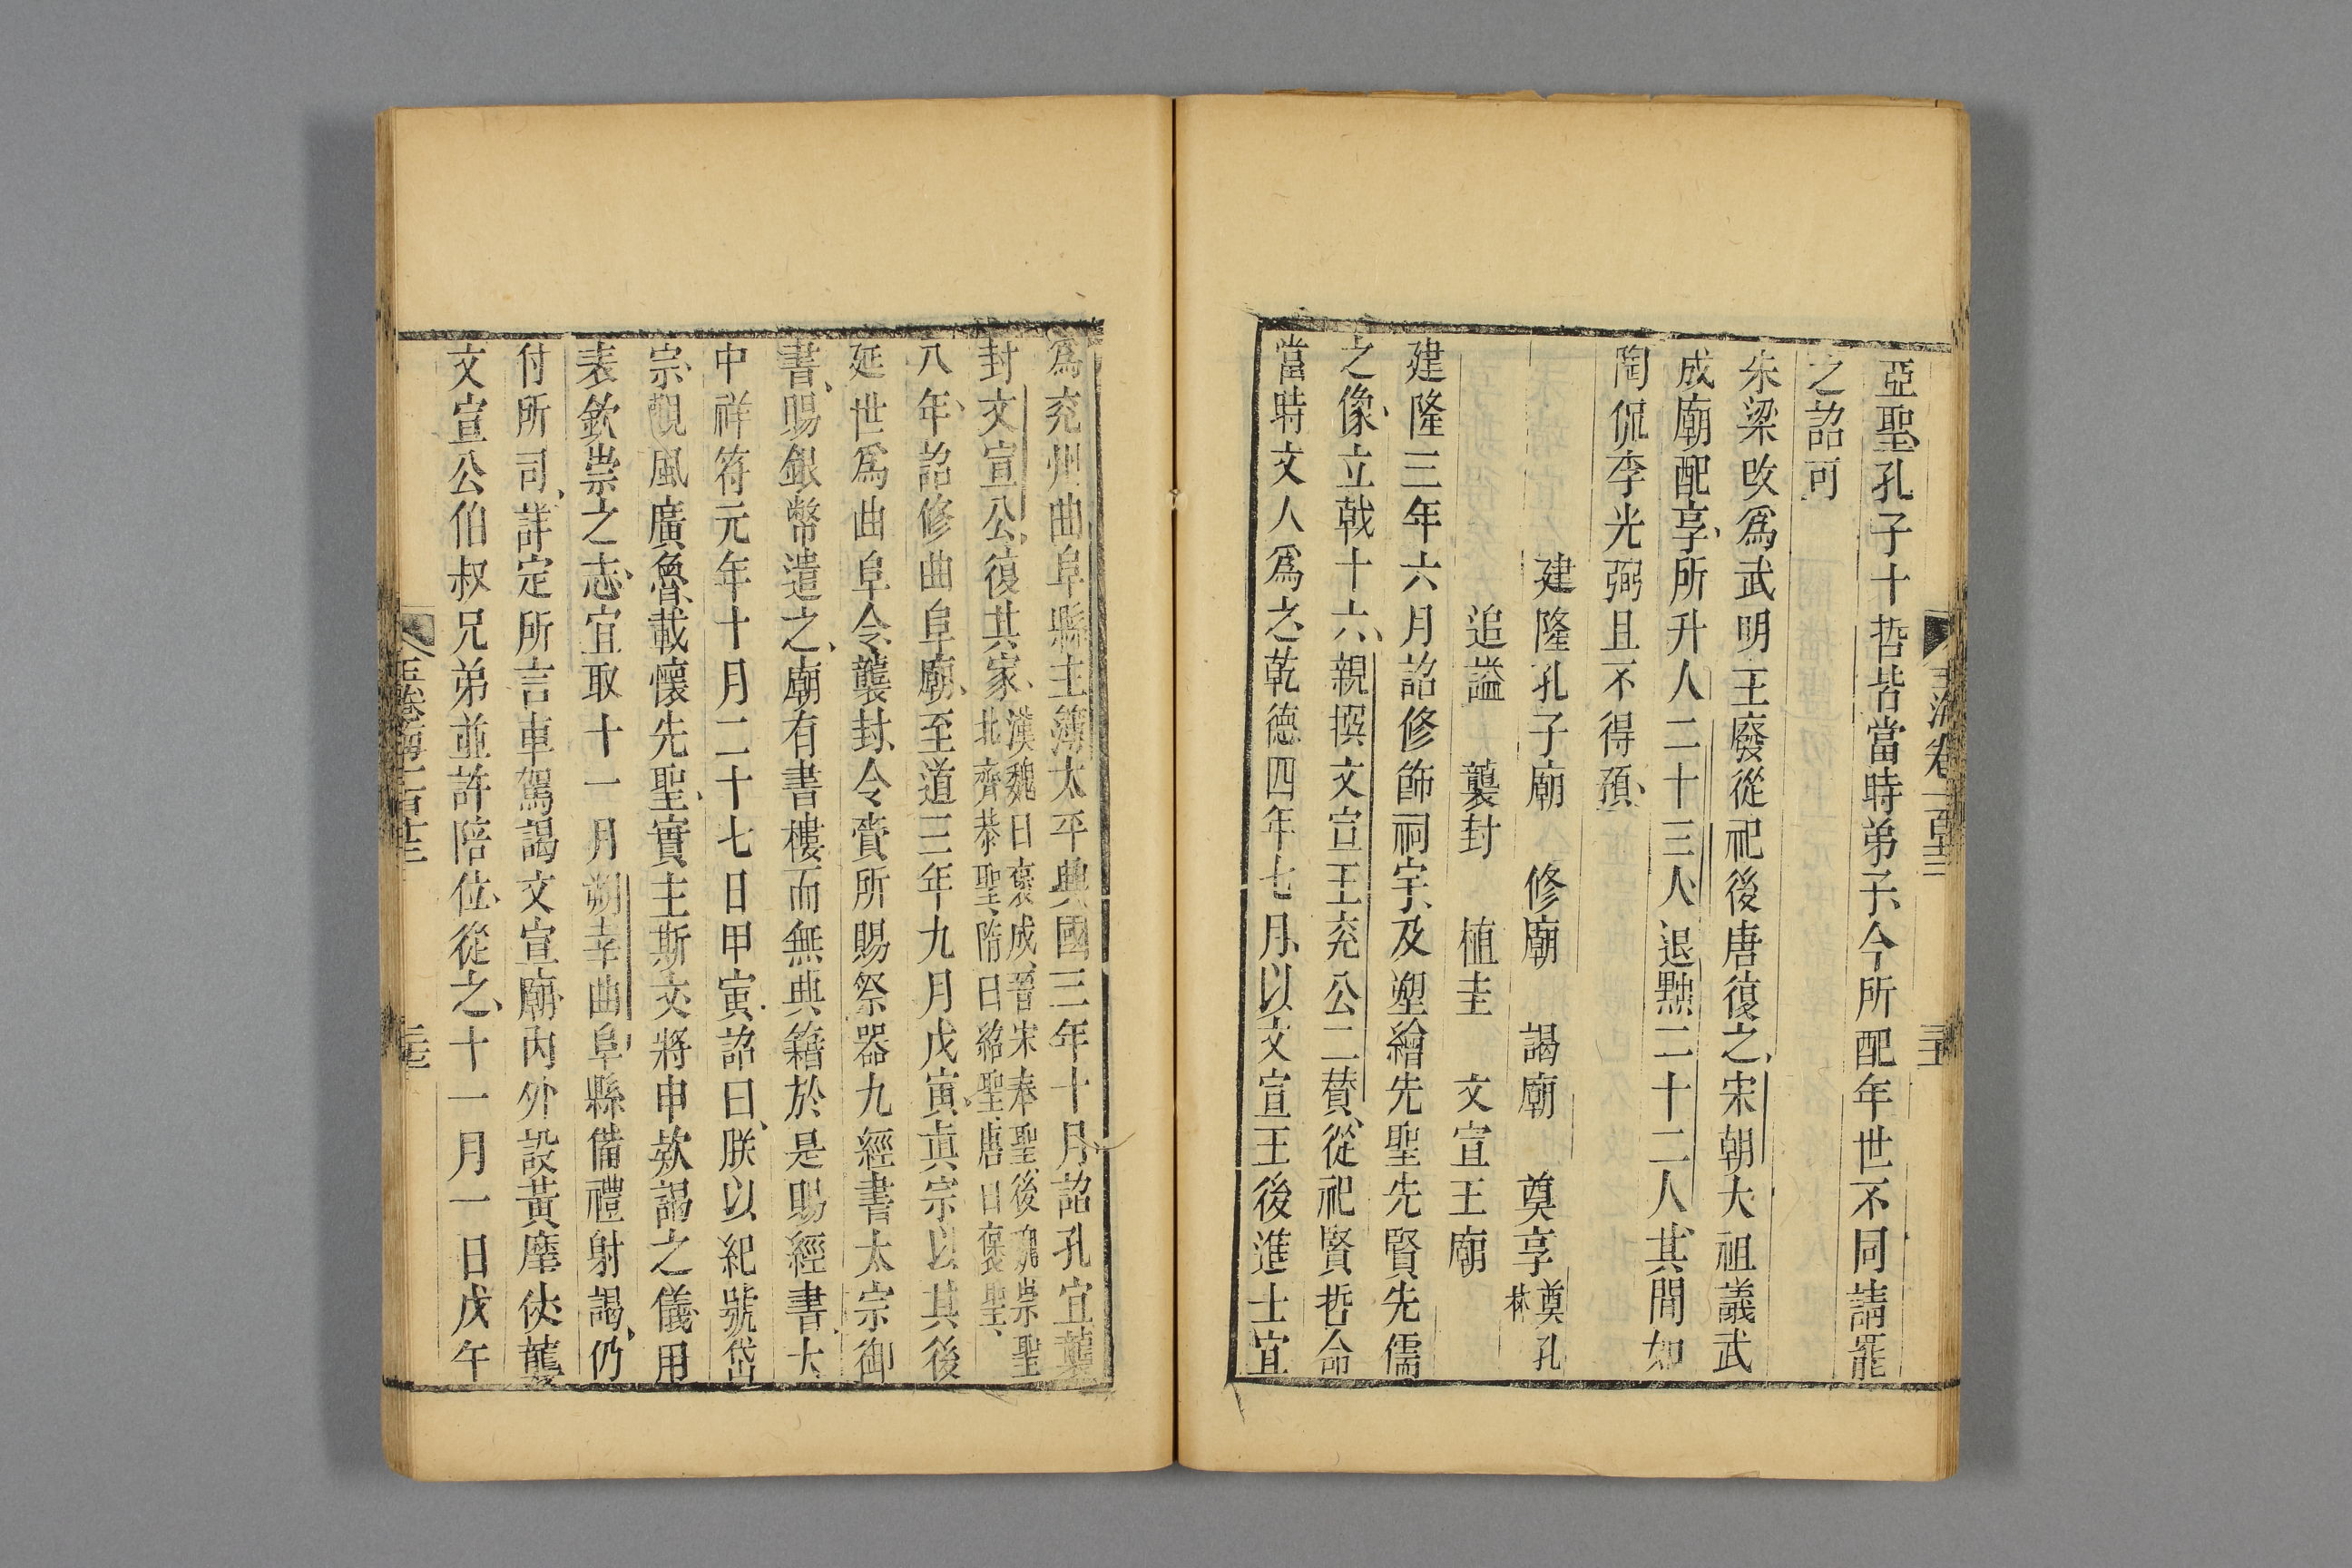 亞聖孔子十哲皆當時弟子今所配年世不同請罷
之詔可
朱梁改爲武明王廢從祀後唐復之宋朝大祖議武
成廟配享所升人二十三人退黜二十二人其閒如
陶侃李光弼且不得預
建隆孔子廟 修廟 謁廟 奠享奠孔林
追謚 襲封 植圭 文宣王廟
建隆三年六月詔修飾祠宇及塑繪先聖先賢先儒
之像立戟十六親撰文宣王兖公二賛從祀賢哲命
當時文人爲之乾德四年七月以文宣王後進士宜
爲兖州曲阜縣主簿太平興國三年十月詔孔宜襲
封文宣公復其家漢魏曰褒成晉宋奉聖後魏崇聖
北齊恭聖隋曰紹聖唐曰褒聖
八年詔修曲阜廟至道三年九月戊寅真宗以其後
延世爲曲阜令襲封令賚所賜祭器九經書太宗御
書賜銀幣遣之廟有書樓而無典籍於是賜經書大
中祥符元年十月二十七日甲寅詔曰朕以紀號岱
宗觀風廣魯載懷先聖實主斯文將申欵謁之儀用
表欽崇之志宜取十一月朔幸曲阜縣備禮射謁仍
付所司詳定所言車駕謁文宣廟內外設黃麾仗襲
文宣公伯叔兄弟並許陪位從之十一月一日戊午